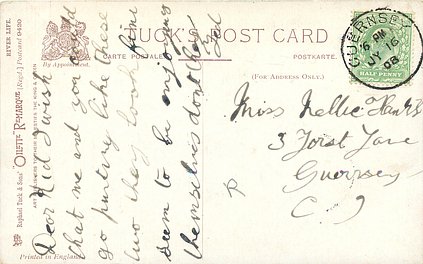 RIVER LIFE.
Raphael Tuck & Sons' "OILETTE" REMARQUE [Regd.] Postcard 9430
ART PUBLISHERS TO THEIR MAJESTIES THE KING & QUEEN
Printed in England.
By Appointment.
TUCK'S POST CARD
CARTE POSTALE
POSTKARTE.
(FOR ADDRESS ONLY.)
GUERNSEY
6 PM
JY 16
08
HALF PENNY
Dear Kid I wish
that me and you could
go punting like these
two they look fine
seem to be enjoying
themselves dont they
Miss Nellie
3 Forst Lane
Guernsey
C I